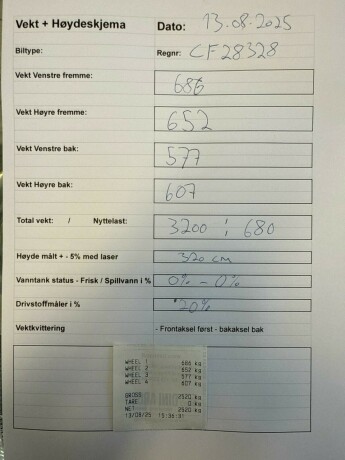 Vekt + Høydeskjema Dato: 13.08-2025
Biltype: Regnr: CF28328
Vekt Venstre fremme: 686
Vekt Høyre fremme: 652
Vekt Venstre bak: 577
Vekt Høyre bak: 607
Total vekt: / Nyttelast: 3200 : 680
Høyde målt + - 5% med laser 320 cm
Vanntank status - Frisk / Spillvann i % 0% - 0%
Drivstoffmåler i % 20%
Vektkvittering - Frontaksel først - bakaksel bak
WHEEL 1 686 Kg
WHEEL 2 652 Kg
WHEEL 3 577 Kg
WHEEL 4 607 Kg
GROSS 2520 Kg
TARE 0 Kg
NET 2520 Kg
13/08/25